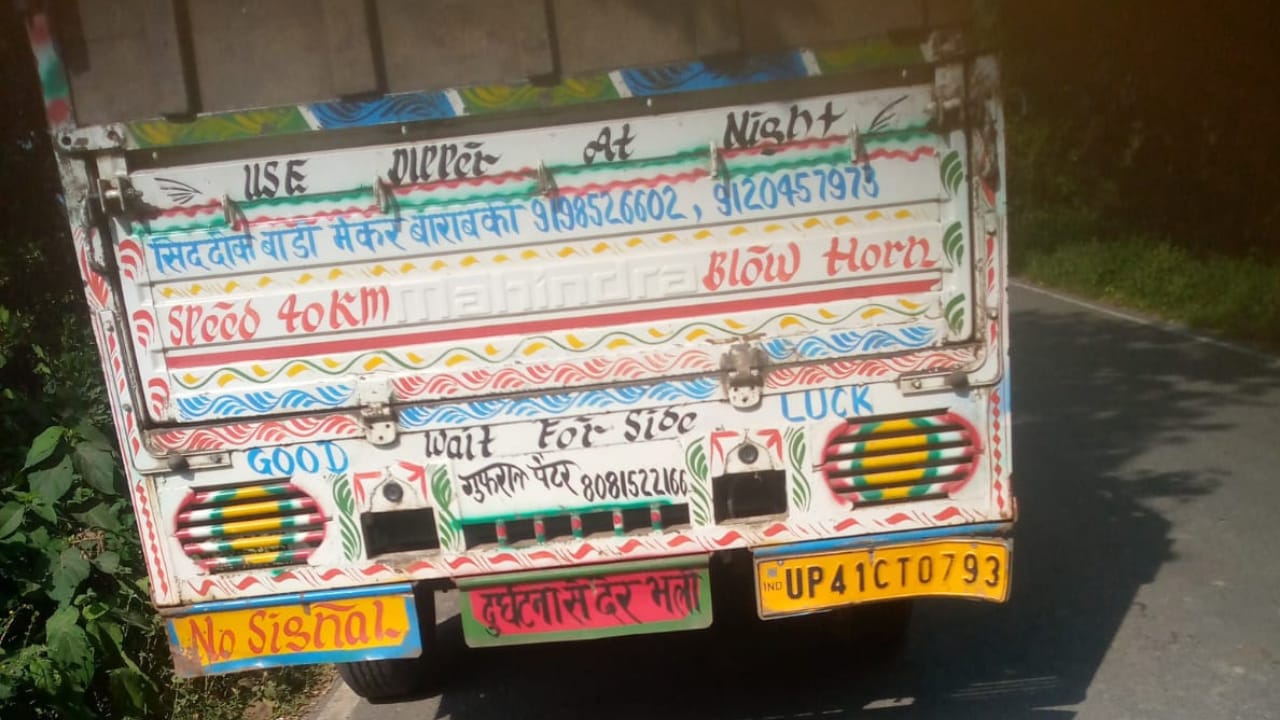 USE DIPPER At Night
सिददीक बाडी मेकर बाराबंकी 9198526602, 9120457973
Speed 40KM mahindra Blow Horn
GOOD Wait For Side LUCK
गुफरान पेंटर 8081522166
No Signal दुर्घटना से देर भली IND UP41CT0793